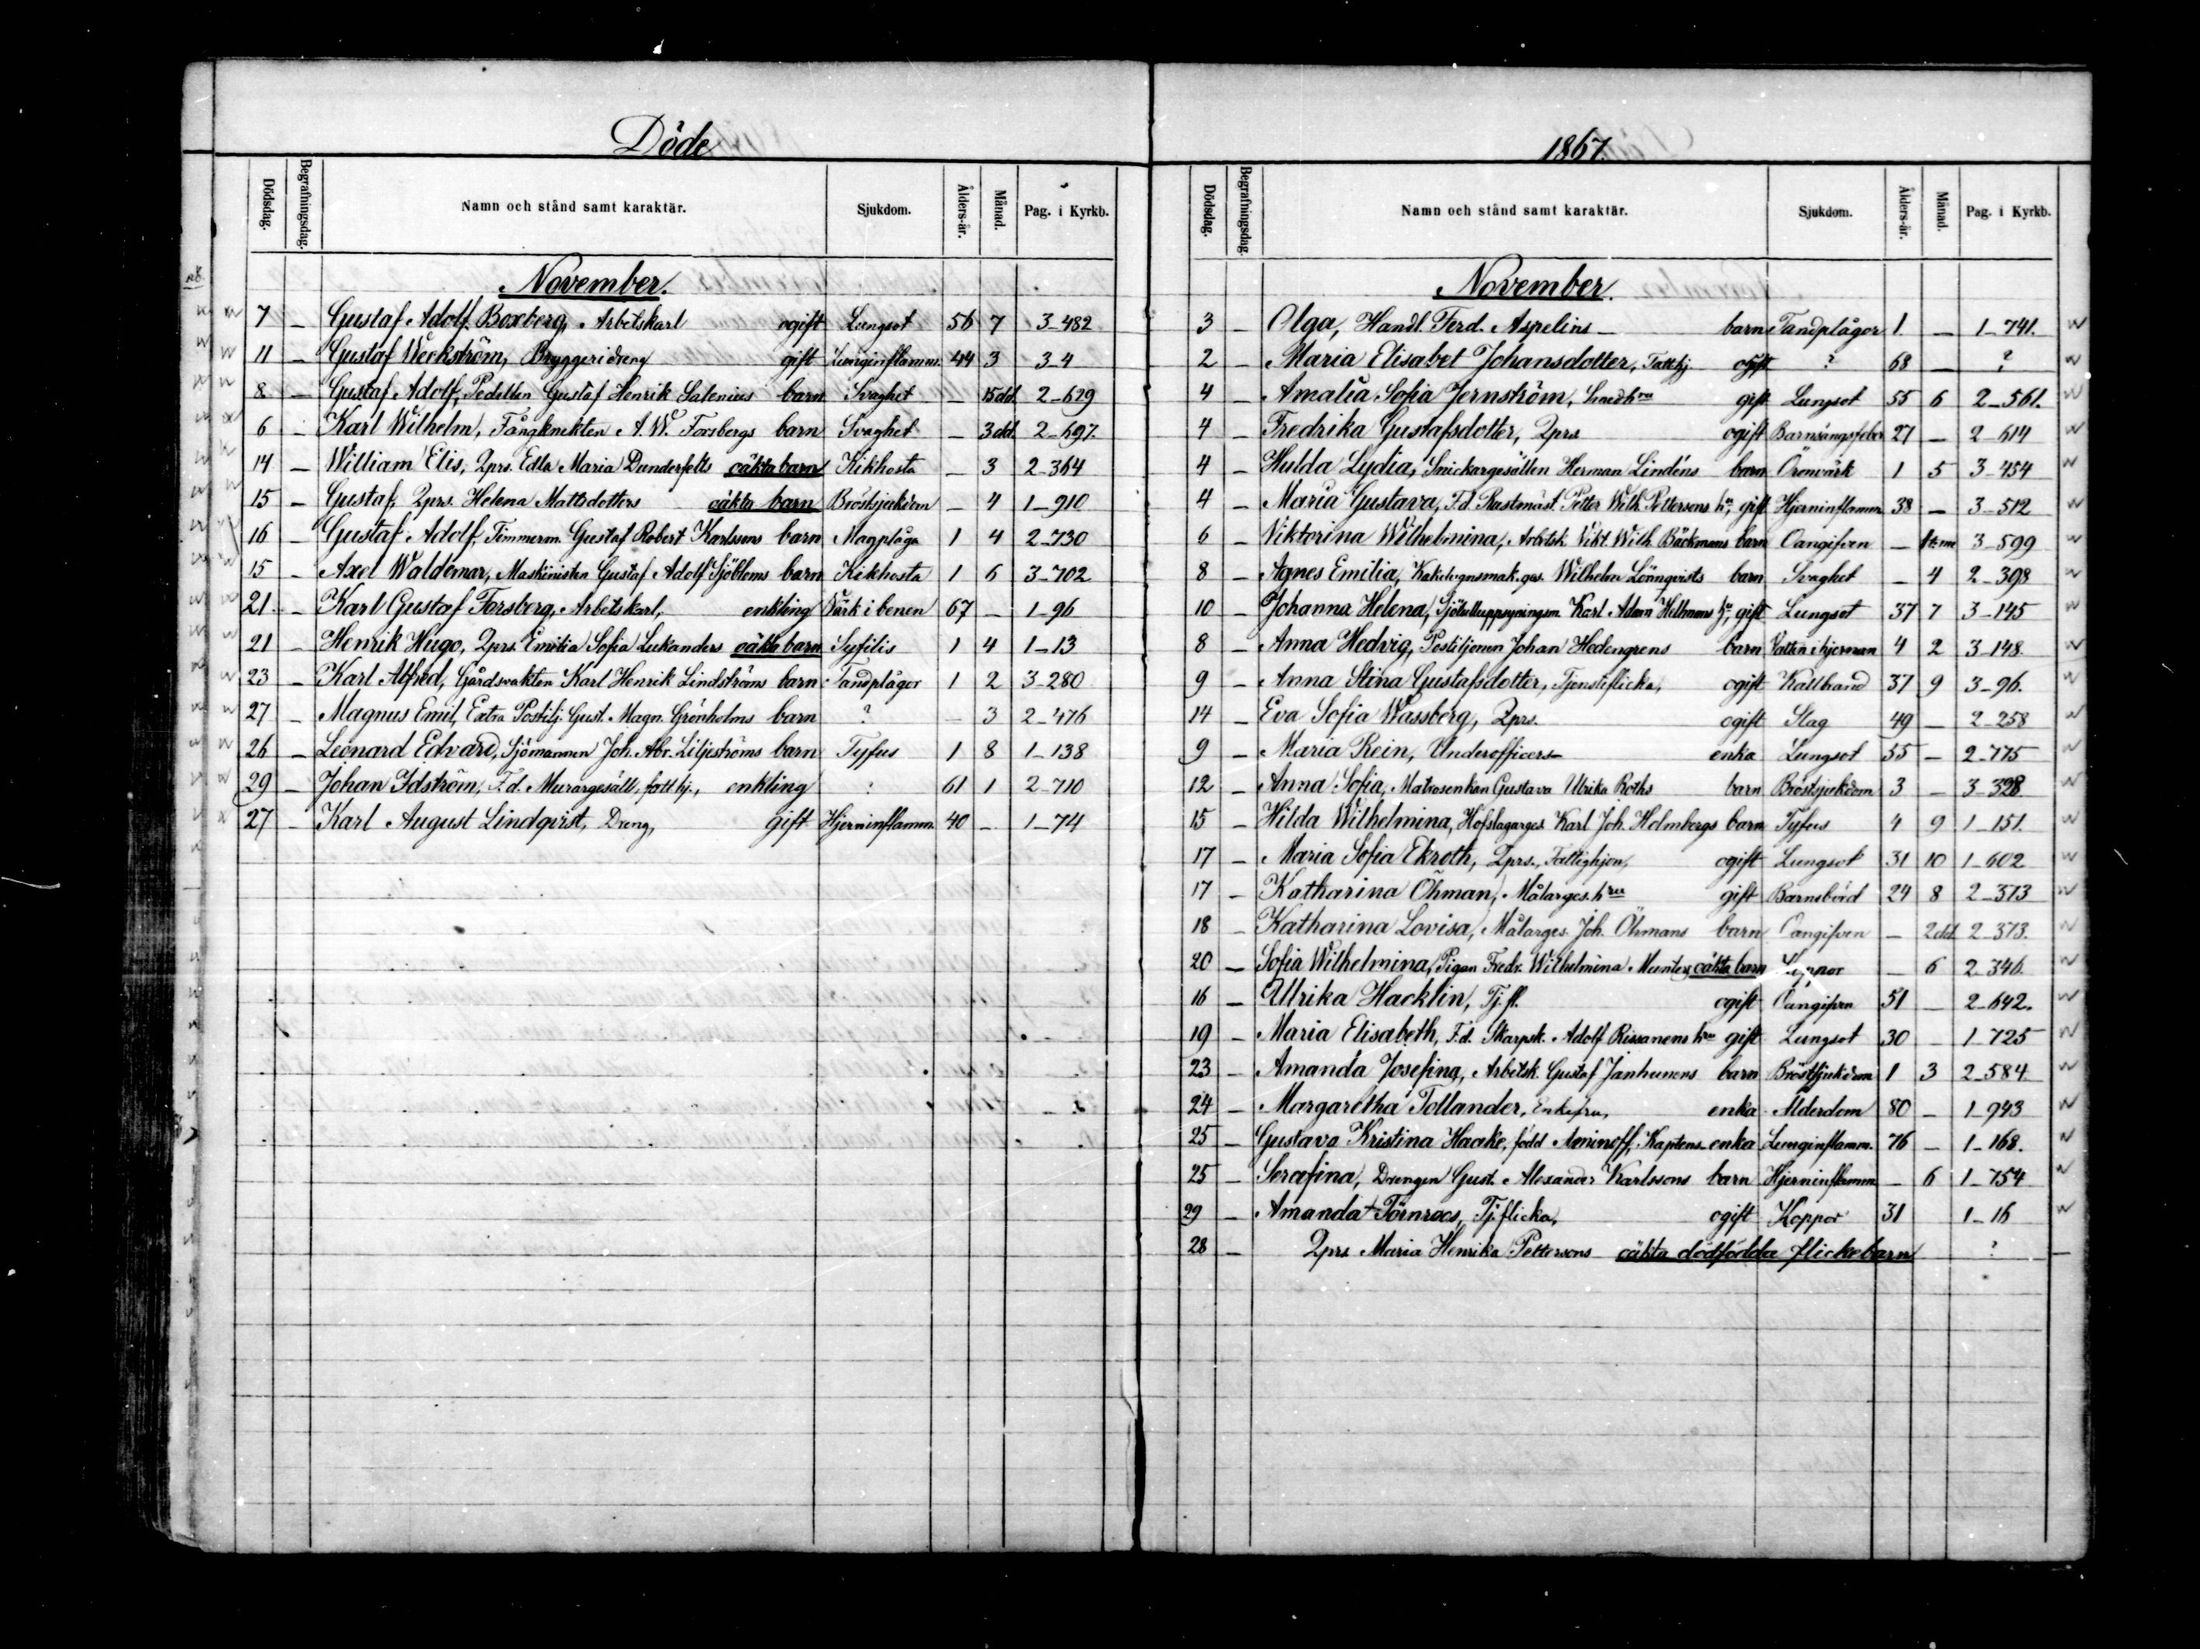 Döde
Dödsdag. Begrafningsdag. Namn och stånd samt karaktär. Sjukdom. Ålders-år. Månad. Pag. i Kyrkb.
November.
7 – Gustaf Adolf Boxberg, Arbetskarl ogift Lungsot 56 7 3–482
11 – Gustaf Weckström, Bryggeridreng gift Lunginflamm. 44 3 3–4
8 – Gustaf Adolf, Pedellen Gustaf Henrik Salenius barn Svaghet – 15 dd. 2–629
6 – Karl Wilhelm, Fångknekten A. W. Forsbergs barn Svaghet – 3 dd. 2–697.
14 – William Elis, Qprs. Edla Maria Dunderfelts oäkta barn Kikhosta – 3 2–364
15 – Gustaf, Qprs. Helena Mattsdotters oäkta barn Bröstsjukdom – 4 1–910
16 – Gustaf Adolf, Timmerm. Gustaf Robert Karlssons barn Magplåga 1 4 2–730
15 – Axel Waldemar, Maskinisten Gustaf Adolf Sjöbloms barn Kikhosta 1 6 3–702
21 – Karl Gustaf Forsberg, Arbetskarl, enkling Värk i benen 67 – 1–96
21 – Henrik Hugo, Qprs. Emilia Sofia Lukanders oäkta barn Syfilis 1 4 1–13
23 – Karl Alfred, Gårdsvakten Karl Henrik Lindströms barn Tandplågor 1 2 3–280
27 – Magnus Emil, Extra Postilj. Gust. Magn. Grönholms barn ? – 3 2–476
26 – Leonard Edvard, Sjömannen Joh. Abr. Liljeströms barn Tyfus 1 8 1–138
29 – Johan Idström, F.d. Murargesäll, fatt hj., enkling ? 61 1 2–710
27 – Karl August Lindqvist, Dreng, gift Hjerninflamm. 40 – 1–74
1867.
Dödsdag. Begrafningsdag. Namn och stånd samt karaktär. Sjukdom. Ålders-år. Månad. Pag. i Kyrkb.
November.
3 – Olga, Handl. Ferd. Aspelins – barn Tandplågor 1 – 1–741.
2 – Maria Elisabet Johansdotter, Fatthj ogift ? 68 – ?
4 – Amalia Sofia Jernström, Smedhru gift Lungsot 55 6 2–561.
4 – Fredrika Gustafsdotter, Qprs. ogift Barnsängsfeber 27 – 2–614
4 – Hulda Lydia, Snickargesällen Herman Lindéns barn Öronvärk 1 5 3–454
4 – Maria Gustava, F.d. Rastmäst. Petter Wilh. Pettersons hu, gift Hjerninflamm 38 – 3–512
6 – Viktorina Wilhelmina, Arbetsk. Vikt. Wilh. Bäckmans barn Oangifven – 3–599
8 – Agnes Emilia, Kakelugnsmak.ges. Wilhelm Lönnqvists barn Svaghet – 4 2–398
10 – Johanna Helena, Sjötulluppsyningsm. Karl Adam Hellmans hu, gift Lungsot 37 7 3–145
8 – Anna Hedvig, Postiljonen Johan Hedengrens barn Vatten i hjernan 4 2 3–148.
9 – Anna Stina Gustafsdotter, Tjensteflicka, ogift Kallbrand 37 9 3–96.
14 – Eva Sofia Wassberg, Qprs. ogift Slag 49 – 2–258
9 – Maria Rein, Underofficers– enka Lungsot 55 – 2–775
12 – Anna Sofia, Matrosenkan Gustava Ulrika Roths barn Bröstsjukdom 3 – 3–328
15 – Hilda Wilhelmina, Hofslagarges Karl Joh. Holmbergs barn Tyfus 4 9 1–151.
17 – Maria Sofia Ekroth, Qprs., Fattighjon, ogift Lungsot 31 10 1–602
17 – Katharina Öhman, Målarges. hru gift Barnsbörd 24 8 2–373
18 – Katharina Lovisa, Målarges. Joh. Öhmans barn Oangifven – 2 dd. 2–373.
20 – Sofia Wilhelmina, Pigan Fredr. Wilhelmina Munters oäkta barn Koppor – 6 2–346.
16 – Ulrika Hacklin, Tj.fl. ogift Oangifven 51 – 2–642.
19 – Maria Elisabeth, F.d. Skarpsk. Adolf Rissanens hru gift Lungsot 30 – 1–725
23 – Amanda Josefina, Arbetsk. Gustaf Janhunens barn Bröstsjukdom 1 3 2–584
24 – Margaretha Tollander, Enkefru, enka Ålderdom 80 – 1–943
25 – Gustava Kristina Haacke, född Aminoff, Kaptens– enka Lunginflamm. 76 – 1–168.
25 – Serafina, Drengen Gust. Alexander Karlssons barn Hjerninflamm. – 6 1–754
29 – Amanda Törnroos, Tj.flicka, ogift Koppor 31 1–16
28 – Qprs. Maria Henrika Pettersons oäkta dödfödda flickebarn ? –